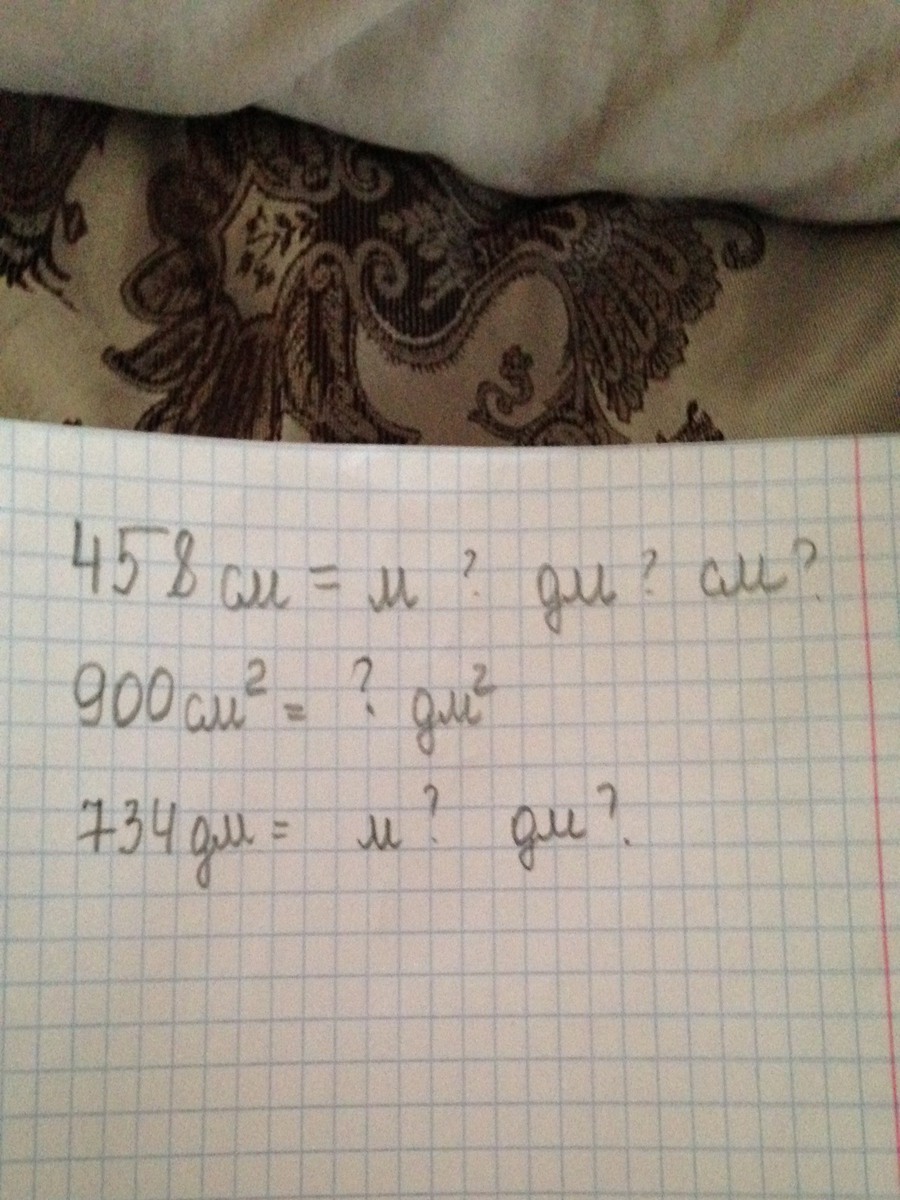 458 см = м ? дм ? см ?
900 см² = ? дм²
734 дм = м ? дм ?